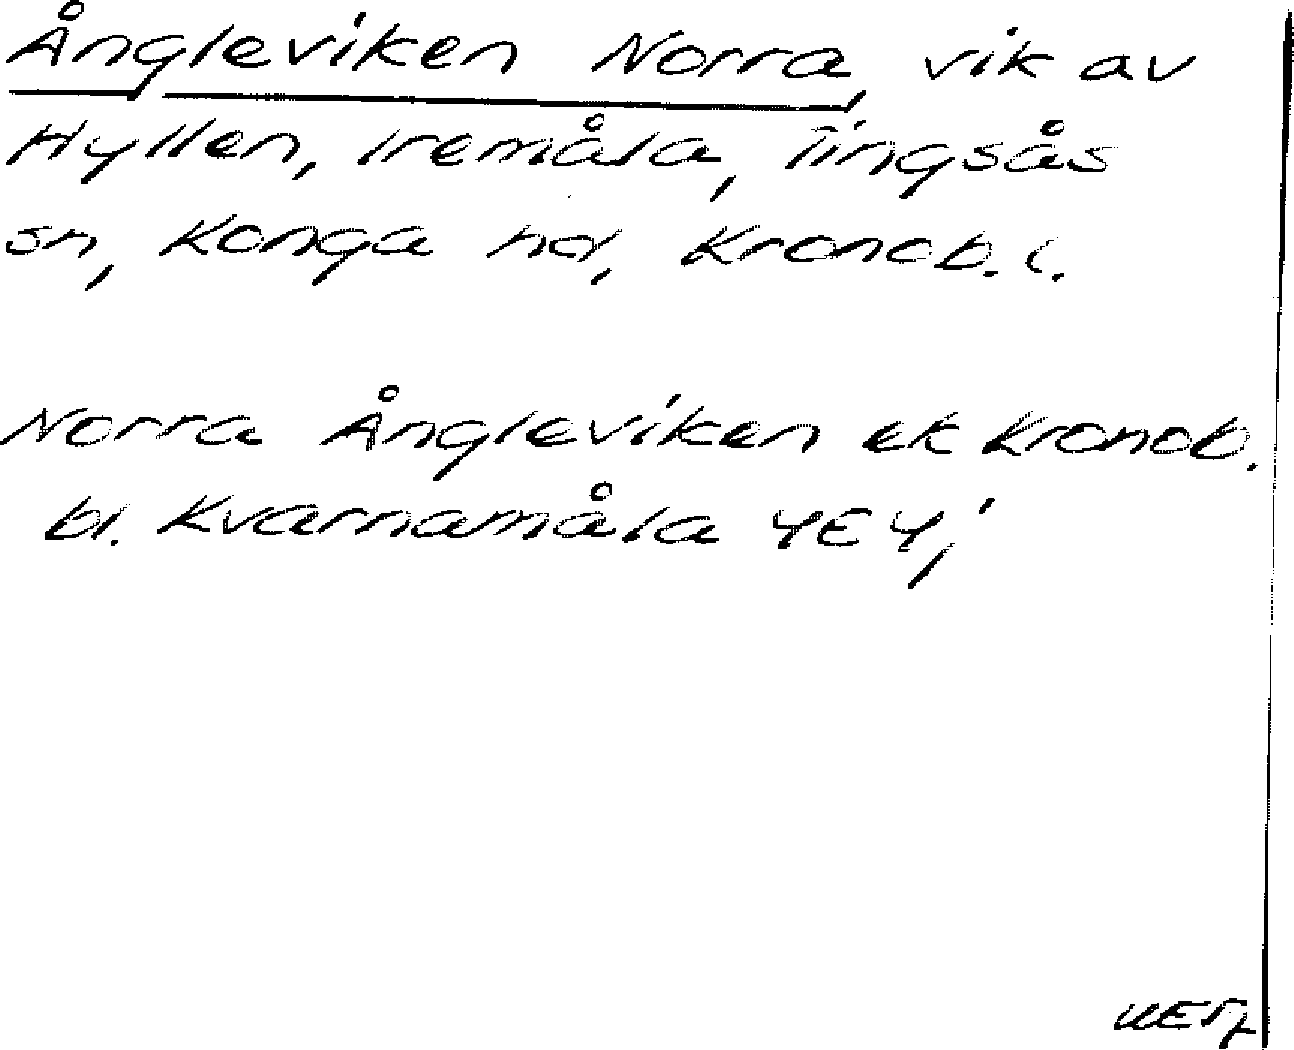 Ångleviken Norra, vik av
Hyllen, Iremåla, Tingsås
sn, Konga hd, Kronob. l.
Norra Ångleviken ek Kronob.
bl. Kvarnamåla 4E4;